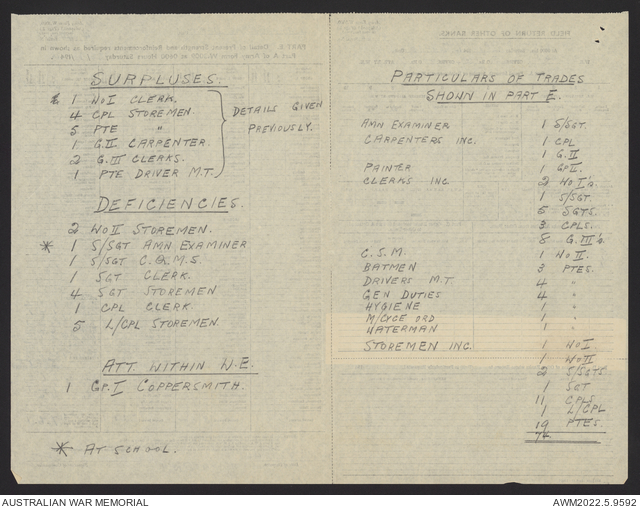 SURPLUSES.
1 WOI CLERK.
4 CPL STOREMEN.
5 PTE "
1 G.II CARPENTER.
2 G.III CLERKS.
1 PTE DRIVER M.T.
DETAILS GIVEN
PREVIOUSLY.
DEFICIENCIES.
2 WOII STOREMEN.
* 1 S/SGT AMN EXAMINER
1 S/SGT C.Q.M.S.
1 SGT CLERK.
4 SGT STOREMEN
1 CPL CLERK.
5 L/CPL STOREMEN.
ATT. WITHIN W.E.
1 GP.I COPPERSMITH.
* AT SCHOOL.
PARTICULARS OF TRADES
SHOWN IN PART E.
AMN EXAMINER 1 S/SGT.
CARPENTERS INC. 1 CPL
1 G.II
PAINTER 1 GPII.
CLERKS INC. 2 WOI's.
1 S/SGT.
5 SGTS.
3 CPLS.
8 G.III's.
C.S.M. 1 WOII.
BATMEN 3 PTES.
DRIVERS M.T 4 "
GEN DUTIES 4 "
HYGIENE 1 "
M/CYCE ORD 1 "
WATERMAN 1 "
STOREMEN INC. 1 WOI
1 WOII
2 S/SGTS
1 SGT
11 CPLS
1 L/CPL
19 PTES
74
AUSTRALIAN WAR MEMORIAL
AWM2022.5.9592